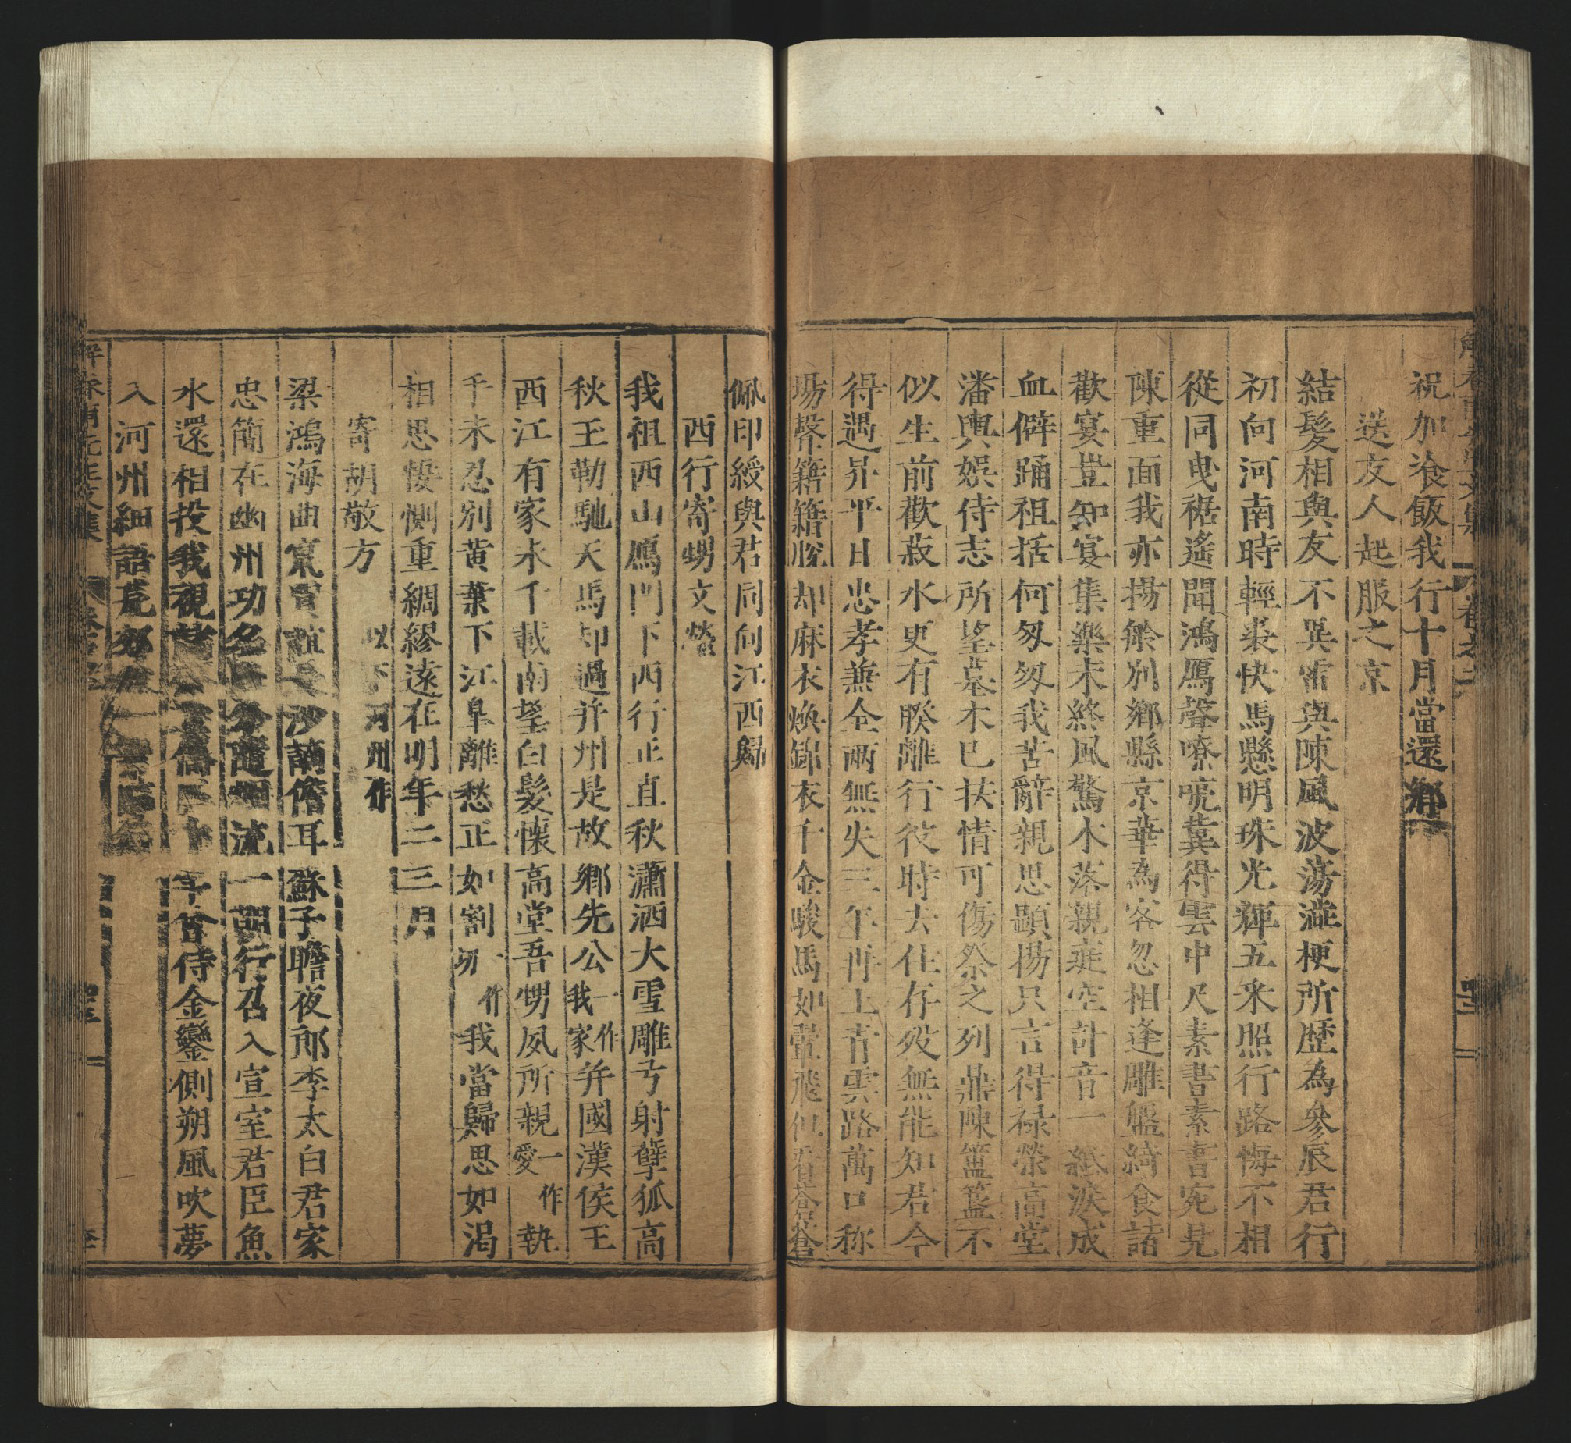 祝加飡飯我行十月當還鄉
送友人起服之京
結髮相與友不異雷與陳風波蕩漄梗所歴為參辰君行
初向河南時輕裘快馬懸明珠光輝五采照行路悔不相
從同曳裾遙聞鴻鴈聲嘹唳葉得雲中尺素書素書宛見
陳重面我亦揚舲別鄉縣京華為客忽相逢雕盤綺食諸
歡宴豈知宴集樂未終風驚木落親庭空訃音一紙淚成
血僻踊祖括何匆匆我苦辭親思顯揚只言得禄榮高堂
潘輿娛侍志所望墓木已扶情可傷祭之列鼎陳簠簋不
似生前歡菽水更有睽離行役時去住存歿無能知君今
得遇昇平日忠孝兼全兩無失三年再上青雲路萬口称
揚聲籍籍脫却麻衣煥錦衣千金駿馬如翬飛但看
佩印綬與君同向江西歸
西行寄甥文瑩
我祖西山鴈門下西行正直秋瀟洒大雪雕弓射孽狐高
秋王勒馳天馬却過并州是故鄉先公一作我家并國漢侯王
西江有家未千載南望白髮懷高堂吾甥夙所親一作愛執
手未忍別黄葉下江皐離愁正如割一作我當歸思如渴
相思悽惻重綢繆遠在明年二三月
寄胡敬方 以下河州作
梁鴻海曲 沙謫儋耳蘇子瞻夜郎李太白君家
忠簡在幽州功名 流一朝行召入宣室君臣魚
水還相投我視 侍金鑾側朔風吹夢
入河州細語